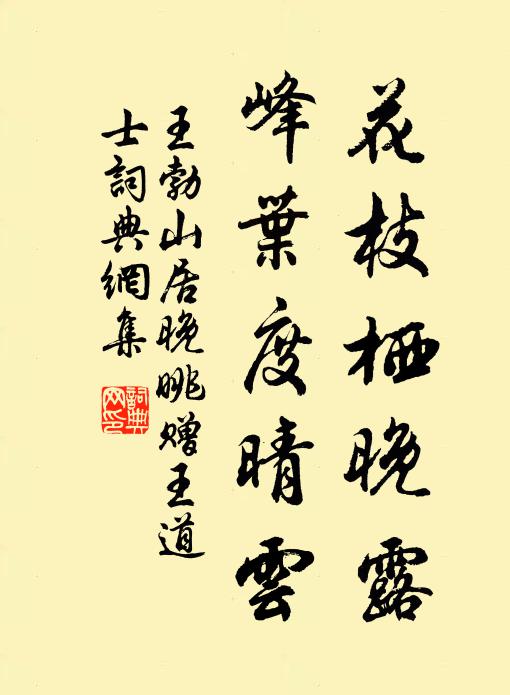 花枝栖晚露
峰葉度晴雲
王勃山居晚眺贈王道
士詞典網集
詞典網印